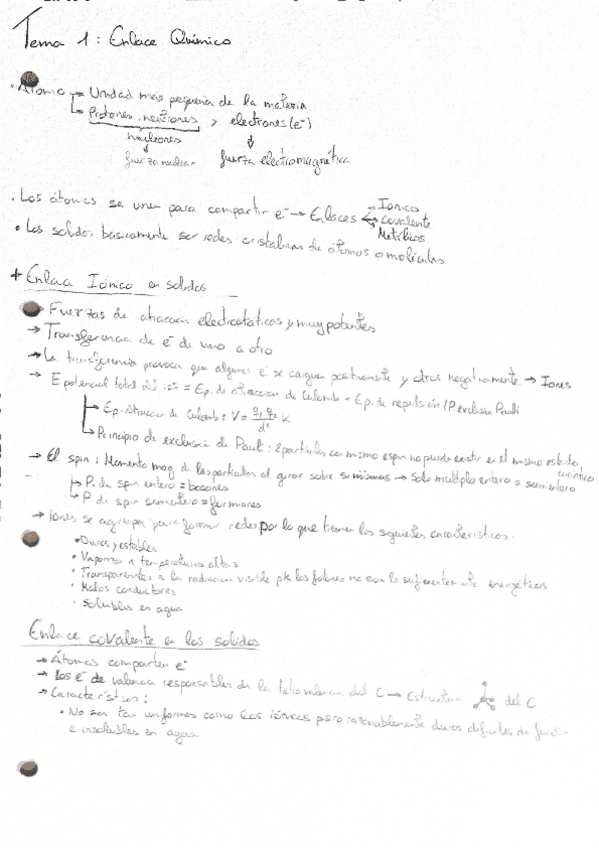 Tema 1: Enlace Químico
· Átomo → Unidad más pequeña de la materia
↳ Protones, neutrones y electrones (e⁻)
nucleones
fuerza nuclear fuerza electromagnética
· Los átomos se unen para compartir e⁻ → Enlaces
Iónico
Covalente
Metálicos
· Los solidos basicamente son redes cristalinas de átomos o moléculas
+ Enlace Iónico en solidos
→ Fuerzas de atracción electrostáticas y muy potentes
→ Transferencia de e⁻ de uno a otro
→ La transferencia provoca que algunos e⁻ se carguen positivamente y otros negativamente → Iones
→ E potencial total del ion = Ep. de atraccion de Culomb + Ep. de repulsión / P exclusión Pauli
→ Ep. Atraccion de Culomb: V = q₁ q₂ / d² K
↳ Principio de exclusión de Pauli: 2 particulas con mismo espin no puede existir en el mismo estado cuántico
→ El spin: Momento mag. de las particulas al girar sobre si mismas → Solo multiplo entero o semientero
↳ P. de spin entero = bosones
↳ P de spin semientero = fermiones
→ iones se agrupan para formar redes por lo que tienen las siguientes caracteristicas.
· Duros y estables
· Vaporizan a temperaturas altas
· Transparentes a la radiacion visible pk los fotones no son lo suficientemente energéticos
· Malos conductores
· Solubles en agua
Enlace covalente en los solidos
→ Átomos comparten e⁻
→ Los e⁻ de valencia responsables de la tetravalencia del C → Estructura del C
→ Caracteristicas:
· No son tan uniformes como los iónicos pero razonablemente duros dificiles de fundir
e insolubles en agua